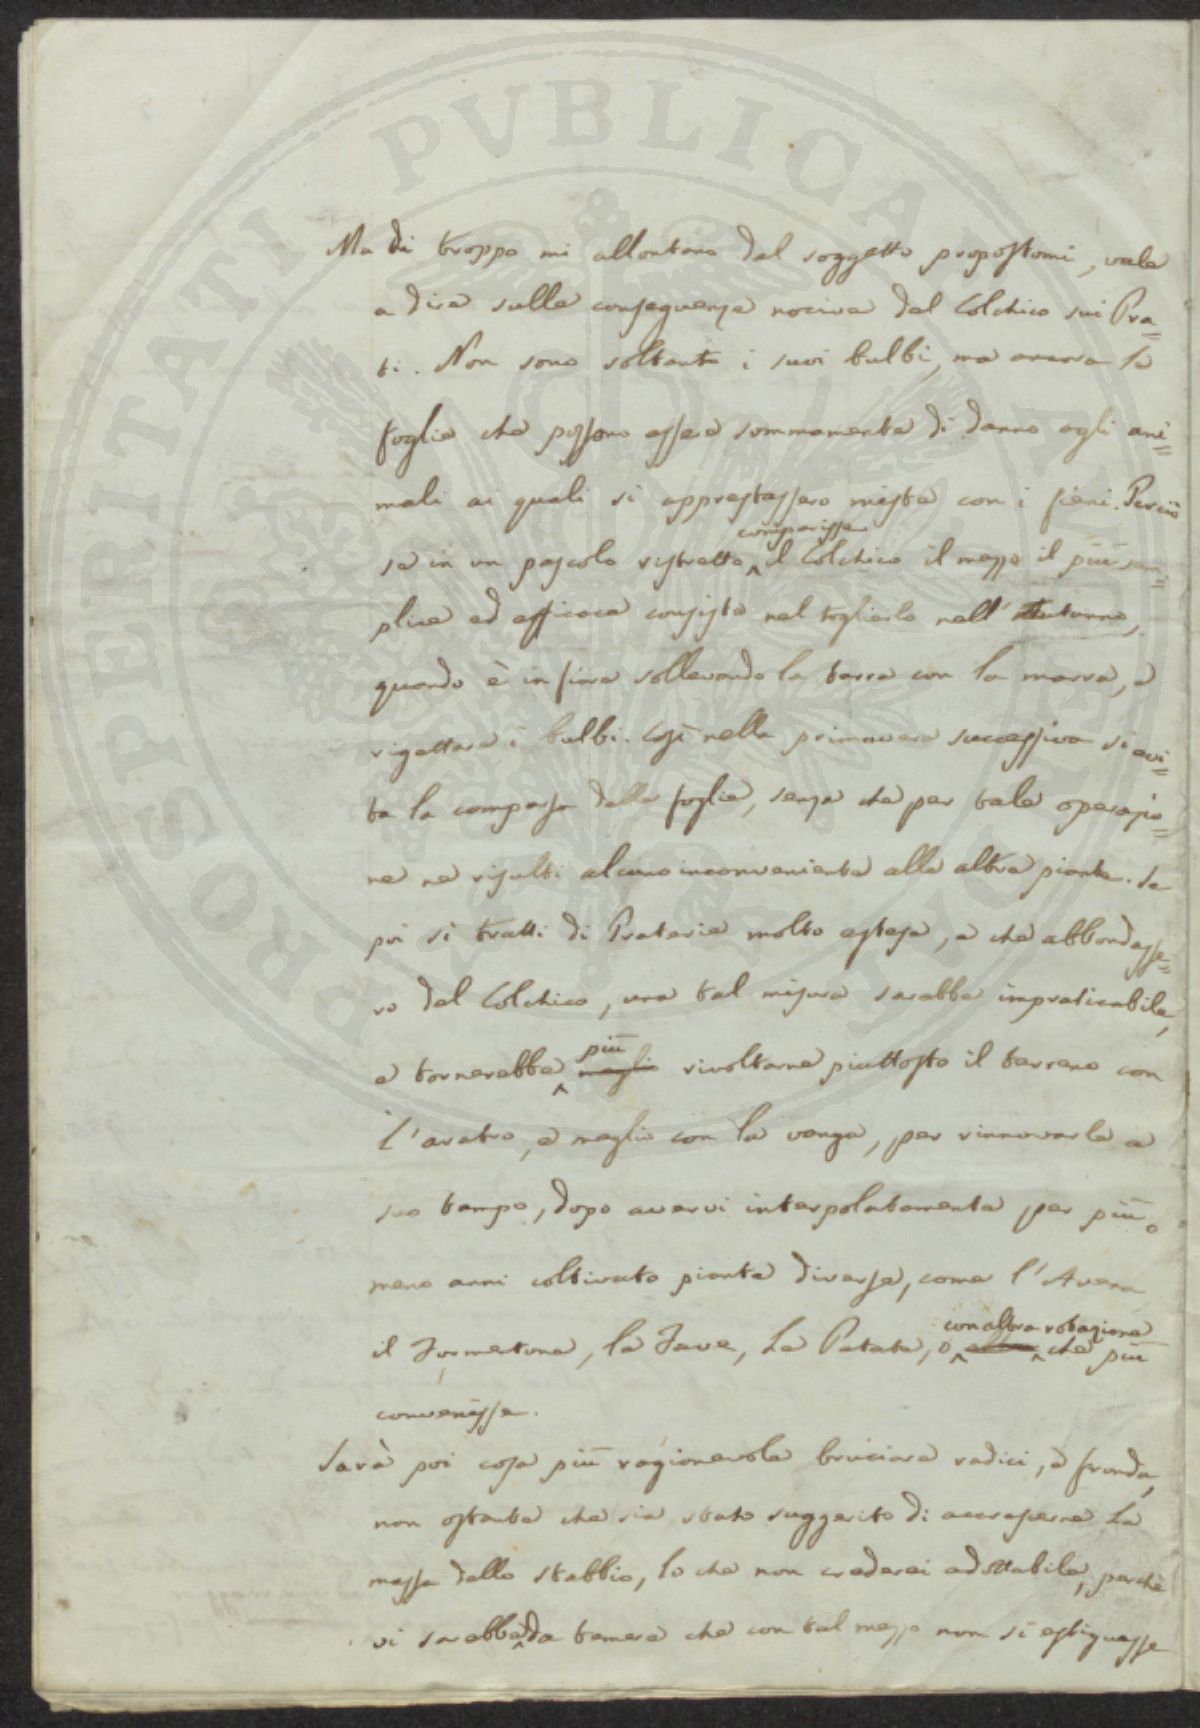 Ma di troppo mi allontano dal soggetto propostomi, vale
a dire sulle conseguenze nocive del Colchico sui Pra=
ti. Non sono soltanto i suoi bulbi, ma ancora le
foglie che possono essere sommamente di danno agli ani=
mali ai quali si apprestassero miste con i fieni. Perciò
comparisse
se in un pascolo ristretto ^ il Colchico il mezzo il più sem=
plice ed efficace consiste nel toglierlo nell' Autunno,
quando è in fiore sollevando la terra con la marra, e
rigettare i bulbi. Così nella primavera successiva si evi=
ta la comparsa delle foglie, senza che per tale operazio=
ne ne risulti alcuno inconveniente alle altre piante. Se
poi si tratti di Praterie molto estese, e che abbondasse=
ro del Colchico, una tal misura sarebbe impraticabile,
più
e tornerebbe ^ meglio rivoltarne piuttosto il terreno con
l'aratro, e meglio con la vanga, per rinnovarle a
suo tempo, dopo avervi interpolatamente per più o
meno anni coltivato piante diverse, come l'Avena
con altra rotazione
il Formentone, la Fave, la Patate, o ^ ^ che più
convenisse.
Sarà poi cosa più ragionevole bruciare radici, e fronde,
non ostante che sia stato suggerito di accrescerne la
massa dello stabbio, lo che non crederei adottabile, perchè
vi sarebbe ^ da temere che con tal mezzo non si estinguesse
PROSPERITATI PVBLICAE